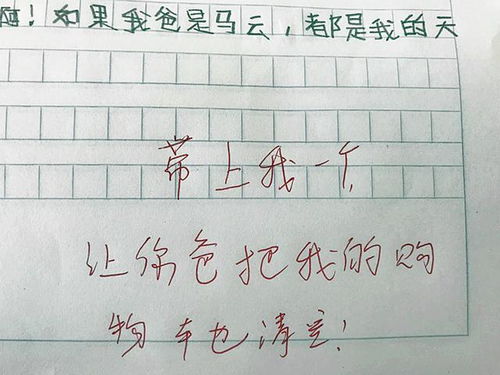 啊！如果我爸是马云，都是我的天
带上我一个，
让你爸把我的购
物车也清空！